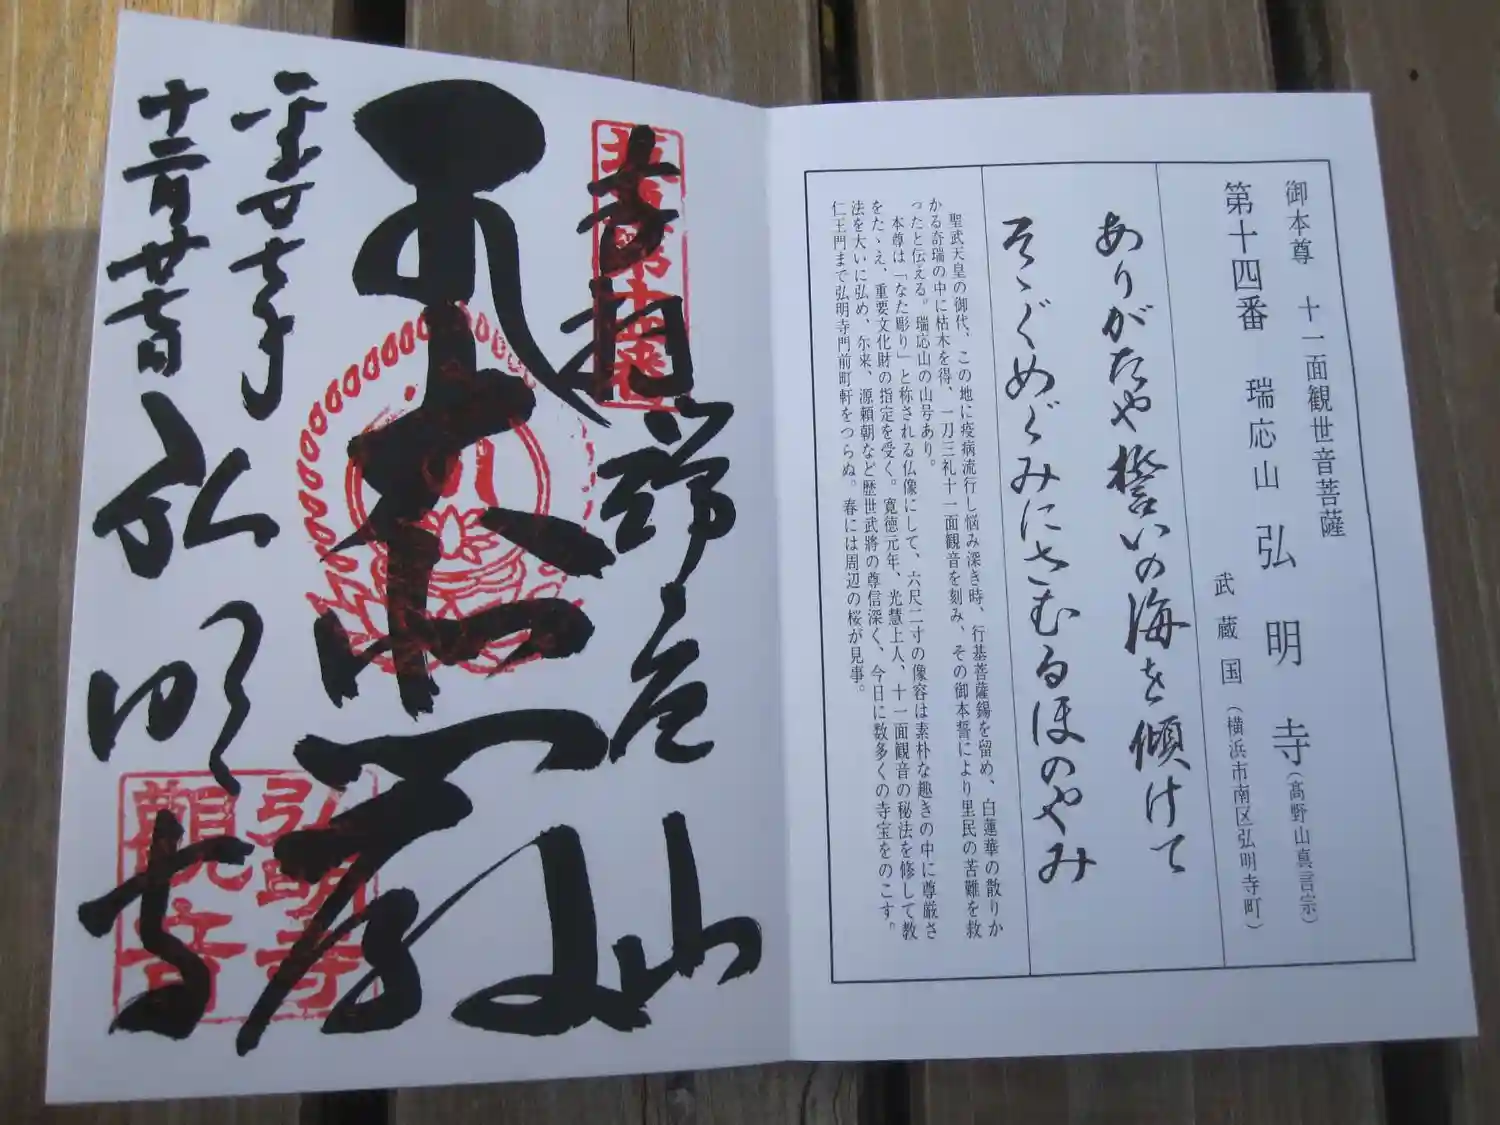 御本尊 十一面観世音菩薩
第十四番 瑞応山 弘明寺(高野山真言宗)
武蔵国(横浜市南区弘明寺町)
ありがたや誓いの海を傾けて
そゝぐめぐみにさむるほのやみ
聖武天皇の御代、この地に疫病流行し悩み深き時、行基菩薩錫を留め、白蓮華の散りか
かる奇瑞の中に枯木を得、一刀三礼十一面観音を刻み、その御本誓により里民の苦難を救
ったと伝える。瑞応山の山号あり。
本尊は「なた彫り」と称される仏像にして、六尺二寸の像容は素朴な趣きの中に尊厳さ
をたゝえ、重要文化財の指定を受く。寛徳元年、光慧上人、十一面観音の秘法を修して教
法を大いに弘め、尓来、源頼朝など歴世武將の尊信深く、今日に数多くの寺宝をのこす。
仁王門まで弘明寺門前町軒をつらぬ。春には周辺の桜が見事。
奉拝 瑞応山
大悲殿
平成廿七年
十二月廿七日 弘明寺
弘明寺
観音